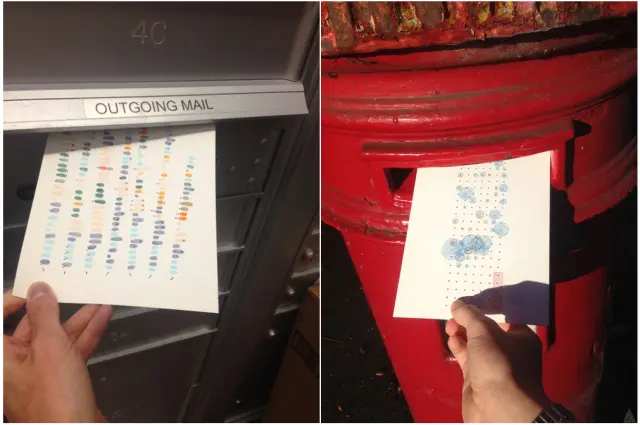 4C
OUTGOING MAIL